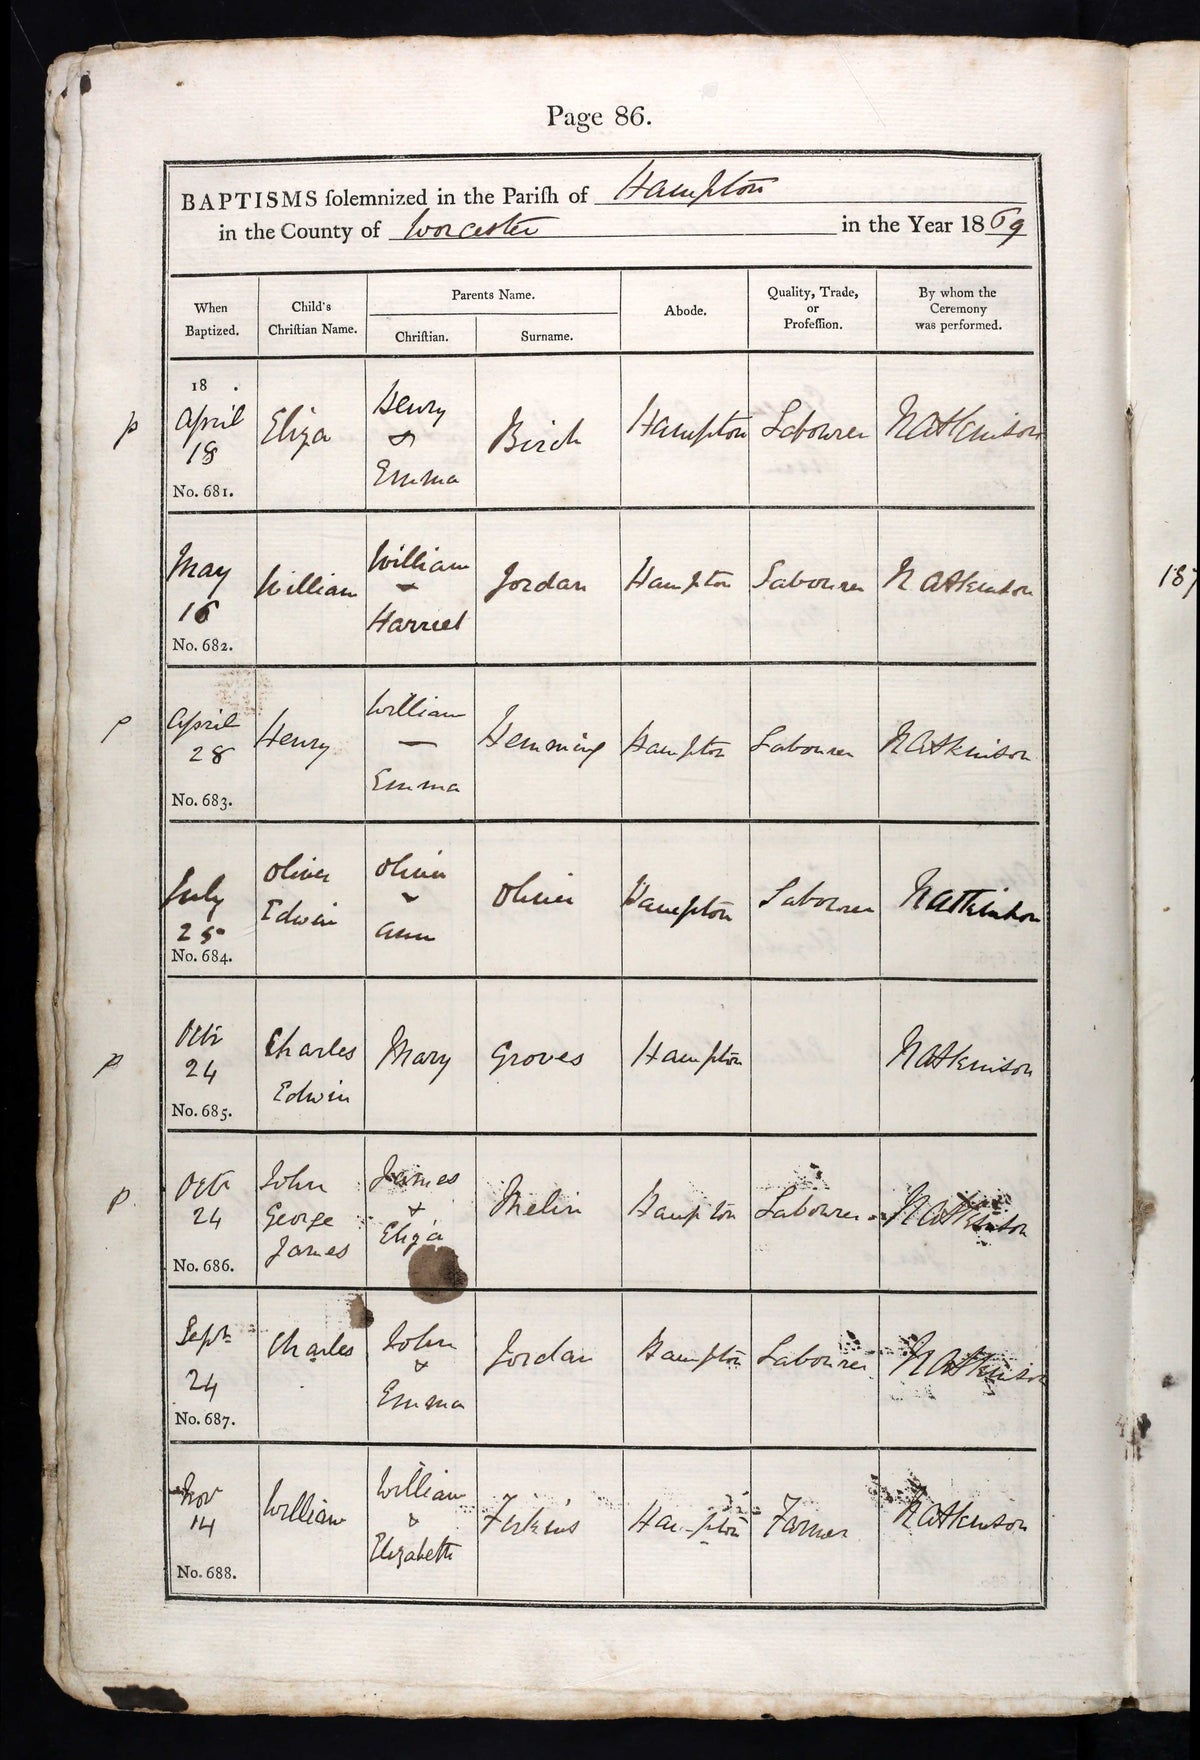 Page 86.
BAPTISMS ſolemnized in the Pariſh of Hampton
in the County of Worcester in the Year 1869
When Baptized.
Child's Chriſtian Name.
Parents Name.
Chriſtian.
Surname.
Abode.
Quality, Trade, or Profeſſion.
By whom the Ceremony was performed.
18
p April 18 Eliza Henry & Emma Birch Hampton Labourer N Atkinson
No. 681.
May 16 William William Harriet Jordan Hampton Labourer N Atkinson
No. 682.
187
p April 28 Henry William — Emma Hemming Hampton Labourer N Atkinson
No. 683.
July 25 Oliver Edwin Oliver Ann Oliver Hampton Labourer N Atkinson
No. 684.
p Octr 24 Charles Edwin Mary Groves Hampton N Atkinson
No. 685.
p Octr 24 John George James James & Eliza Hampton Labourer N Atkinson
No. 686.
Sept 24 Charles John & Emma Jordan Hampton Labourer N Atkinson
No. 687.
Nov 14 William William & Elizabeth Firkins Hampton Farmer N Atkinson
No. 688.